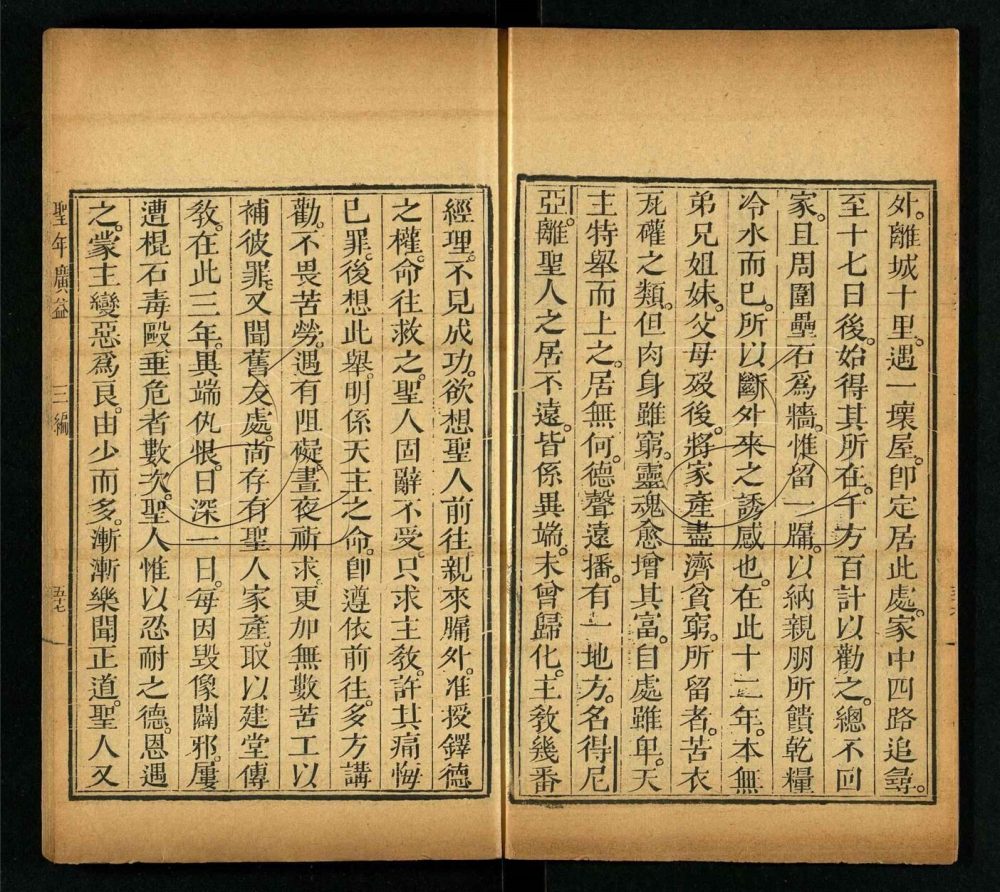 外。離城十里。遇一壞屋。卽定居此處。家中四路追尋。
至十七日後。始得其所在。千方百計以勸之。總不回
家。且周圍壘石爲牆。惟留一牖。以納親朋所饋乾糧
冷水而已。所以斷外來之誘感也。在此十二年。本無
弟兄姐妹。父母歿後。將家產盡濟貧窮。所留者。苦衣
瓦礶之類。但肉身雖窮。靈魂愈增其富。自處雖卑。天
主特舉而上之。居無何。德聲遠播。有一地方。名得尼
亞。離聖人之居不遠。皆係異端。未曾歸化。主敎幾番
經理。不見成功。欲想聖人前往。親來牖外。准授鐸德
之權。命往救之。聖人固辭不受。只求主敎。許其痛悔
已罪。後想此舉明係天主之命。卽遵依前往。多方講
勸。不畏苦勞。遇有阻礙。晝夜祈求。更加無數苦工以
補彼罪。又聞舊友處。尚存有聖人家產。取以建堂傳
敎。在此三年。異端仇恨。日深一日。每因毀像闢邪。屢
遭棍石毒毆。垂危者數次。聖人惟以忍耐之德。恩遇
之。蒙主變惡爲良。由少而多。漸漸樂聞正道。聖人又
聖年廣益 三編 五十七